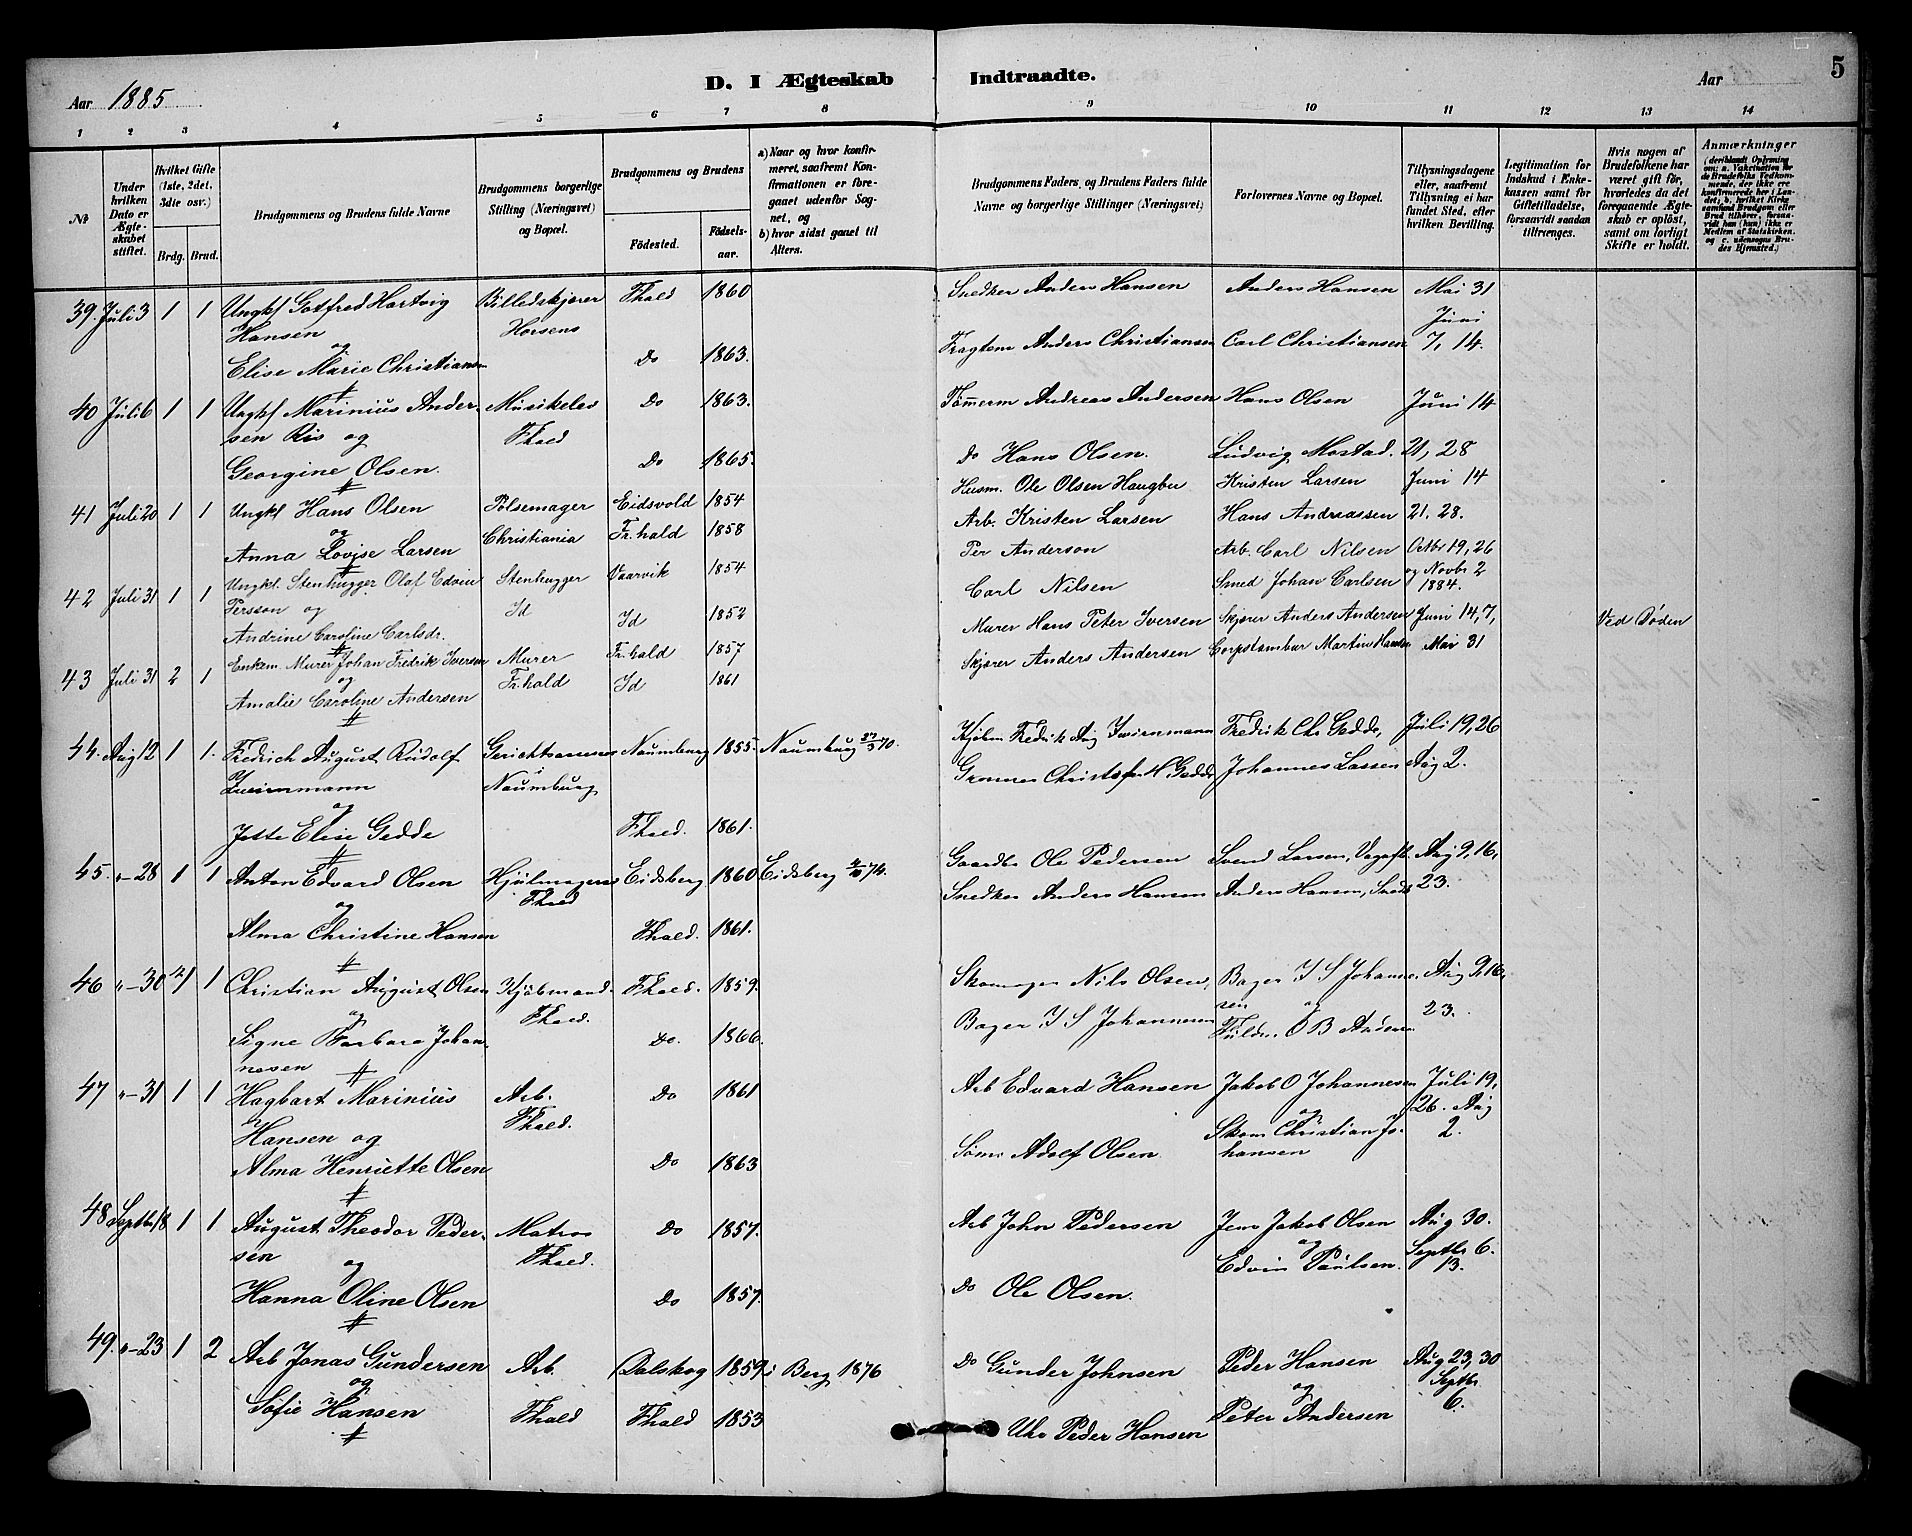 D. I Ægteskab Indtraadte.
5
Aar 1885
Aar
1 2 3 4 5 6 7 8 9 10 11 12 13 14
№
Under hvilken Dato er Ægteskabet stiftet.
Hvilket Gifte (1ste, 2det, 3die osv.)
Brdg. Brud.
Brudgommens og Brudens fulde Navne
Brudgommens borgerlige Stilling (Næringsvei) og Bopæl.
Brudgommens og Brudens
Fødested.
Fødselsaar.
a) Naar og hvor konfirmeret, saafremt Konfirmationen er foregaaet udenfor Sognet, og
b) hvor sidst gaaet til Alters.
Brudgommens Faders, og Brudens Faders fulde Navne og borgerlige Stillinger (Næringsvei)
Forlovernes Navne og Bopæl.
Tillysningsdagene eller, saafremt Tillysning ei har fundet Sted, efter hvilken Bevilling.
Legitimation for Indskud i Enkekassen samt for Giftetilladelse, forsaavidt saadan tiltrænges.
Hvis nogen af Brudefolkene har været gift før, hvorledes da det foregaaende Ægteskab er opløst, samt om lovligt Skifte er holdt.
Anmærkninger
39. Juli 3 1 1 Ungkl Gotfred Hartvig Billedskjærer Fhald 1860 Snedker Anders Hansen Anders Hansen Mai 31
Hansen Horsens Juni
og
Elise Marie Christiansen Do 1863. Fragtem Anders Christiansen Carl Christiansen 7, 14.
40 Juli 6 1 1 Ungkl Marinius Ander- Musikelev Do 1863. Tømerm Andreas Andersen Hans Olsen Juni 14
sen Ris og Fhald
Georgine Olsen. Do 1865. Do Hans Olsen. Ludvig Mostad. 21, 28
41 Juli 20 1 1 Ungkl Hans Olsen Pølsemager Eidsvold 1854 Husm. Ole Olsen Haugbu Kristen Larsen Juni 14
og Christiania
Anna Lovise Larsen Fr.hald 1858 Arb. Kristen Larsen Hans Andreassen 21. 28.
42 Juli 31 1 1 Ungkl. Stenhugger Olaf Edvin Stenhugger Vaarvik 1854 Per Anderson Arb. Carl Nilsen Octbr 19, 26
Persson og Id og Novbr 2
Andrine Caroline Carlsdr. Id 1852 Carl Nilsen Smed Johan Carlsen 1884.
43 Juli 31 2 1 Enkem. Murer Johan Fredrik Iversen Murer Fr.hald 1857 Murer Hans Peter Iversen Skjører Anders Andersen Juni 14, 7, Ved Døden
og Fr.hald
Amalie Caroline Andersen Id 1861 Skjører Anders Andersen Corpstambur Martin Hansen Mai 31
44. Aug 12 1 1. Fredrich August Rudolf Naumburg 1855. Naumburg 70. Kjøbm Fredrik Aug Fredrik Chr Gedde, Juli 19, 26
Naumburg
og
Jette Elise Gedde Fhald. 1861. Christofer H Gedde Johannes Lassen Aug 2.
45. „-28 1 1 Anton Edvard Olsen Hjulmager Eidsberg 1860 Eidsberg 74. Gaardbr Ole Pedersen Svend Larsen, Aug 9, 16,
og Fhald
Alma Christine Hansen Fhald. 1861. Snedker Anders Hansen Anders Hansen, Snedk 23.
46 „-30 1 1 Christian August Olsen Kjøbmand. Fhald. 1859. Skomager Nils Olsen, Bager I S Johanne- Aug 9, 16,
og Fhald. sen og
Signe Barbara Johan- Do. 1866. Bager I S Johannesen O B Andersen 23.
nesen
47 „-31 1 1 Hagbart Marinius Arb. Do 1861 Arb Edvard Hansen Jakob O Johannesen Juli 19,
Hansen og Fhald. og 26. Aug
Alma Henriette Olsen Do 1863 Sømd Adolf Olsen. Skom Christian Jo- 2.
hansen
48 Septbr 18 1 1 August Theodor Peder- Matros Do 1857. Arb John Pedersen Jens Jakob Olsen Aug 30.
sen og Fhald. og Septbr 6.
Hanna Oline Olsen Do 1857. Do Ole Olsen. Edvin Paulsen. 13.
49. „-23 1 2 Arb Jonas Gundersen Arb. Dalskog 1859 i Berg 1876 Do Gunder Johnsen Peder Hansen Aug 23, 30
og og Septbr
Sofie Hansen Fhald Fhald 1853 Peder Hansen Peter Andersen 6.